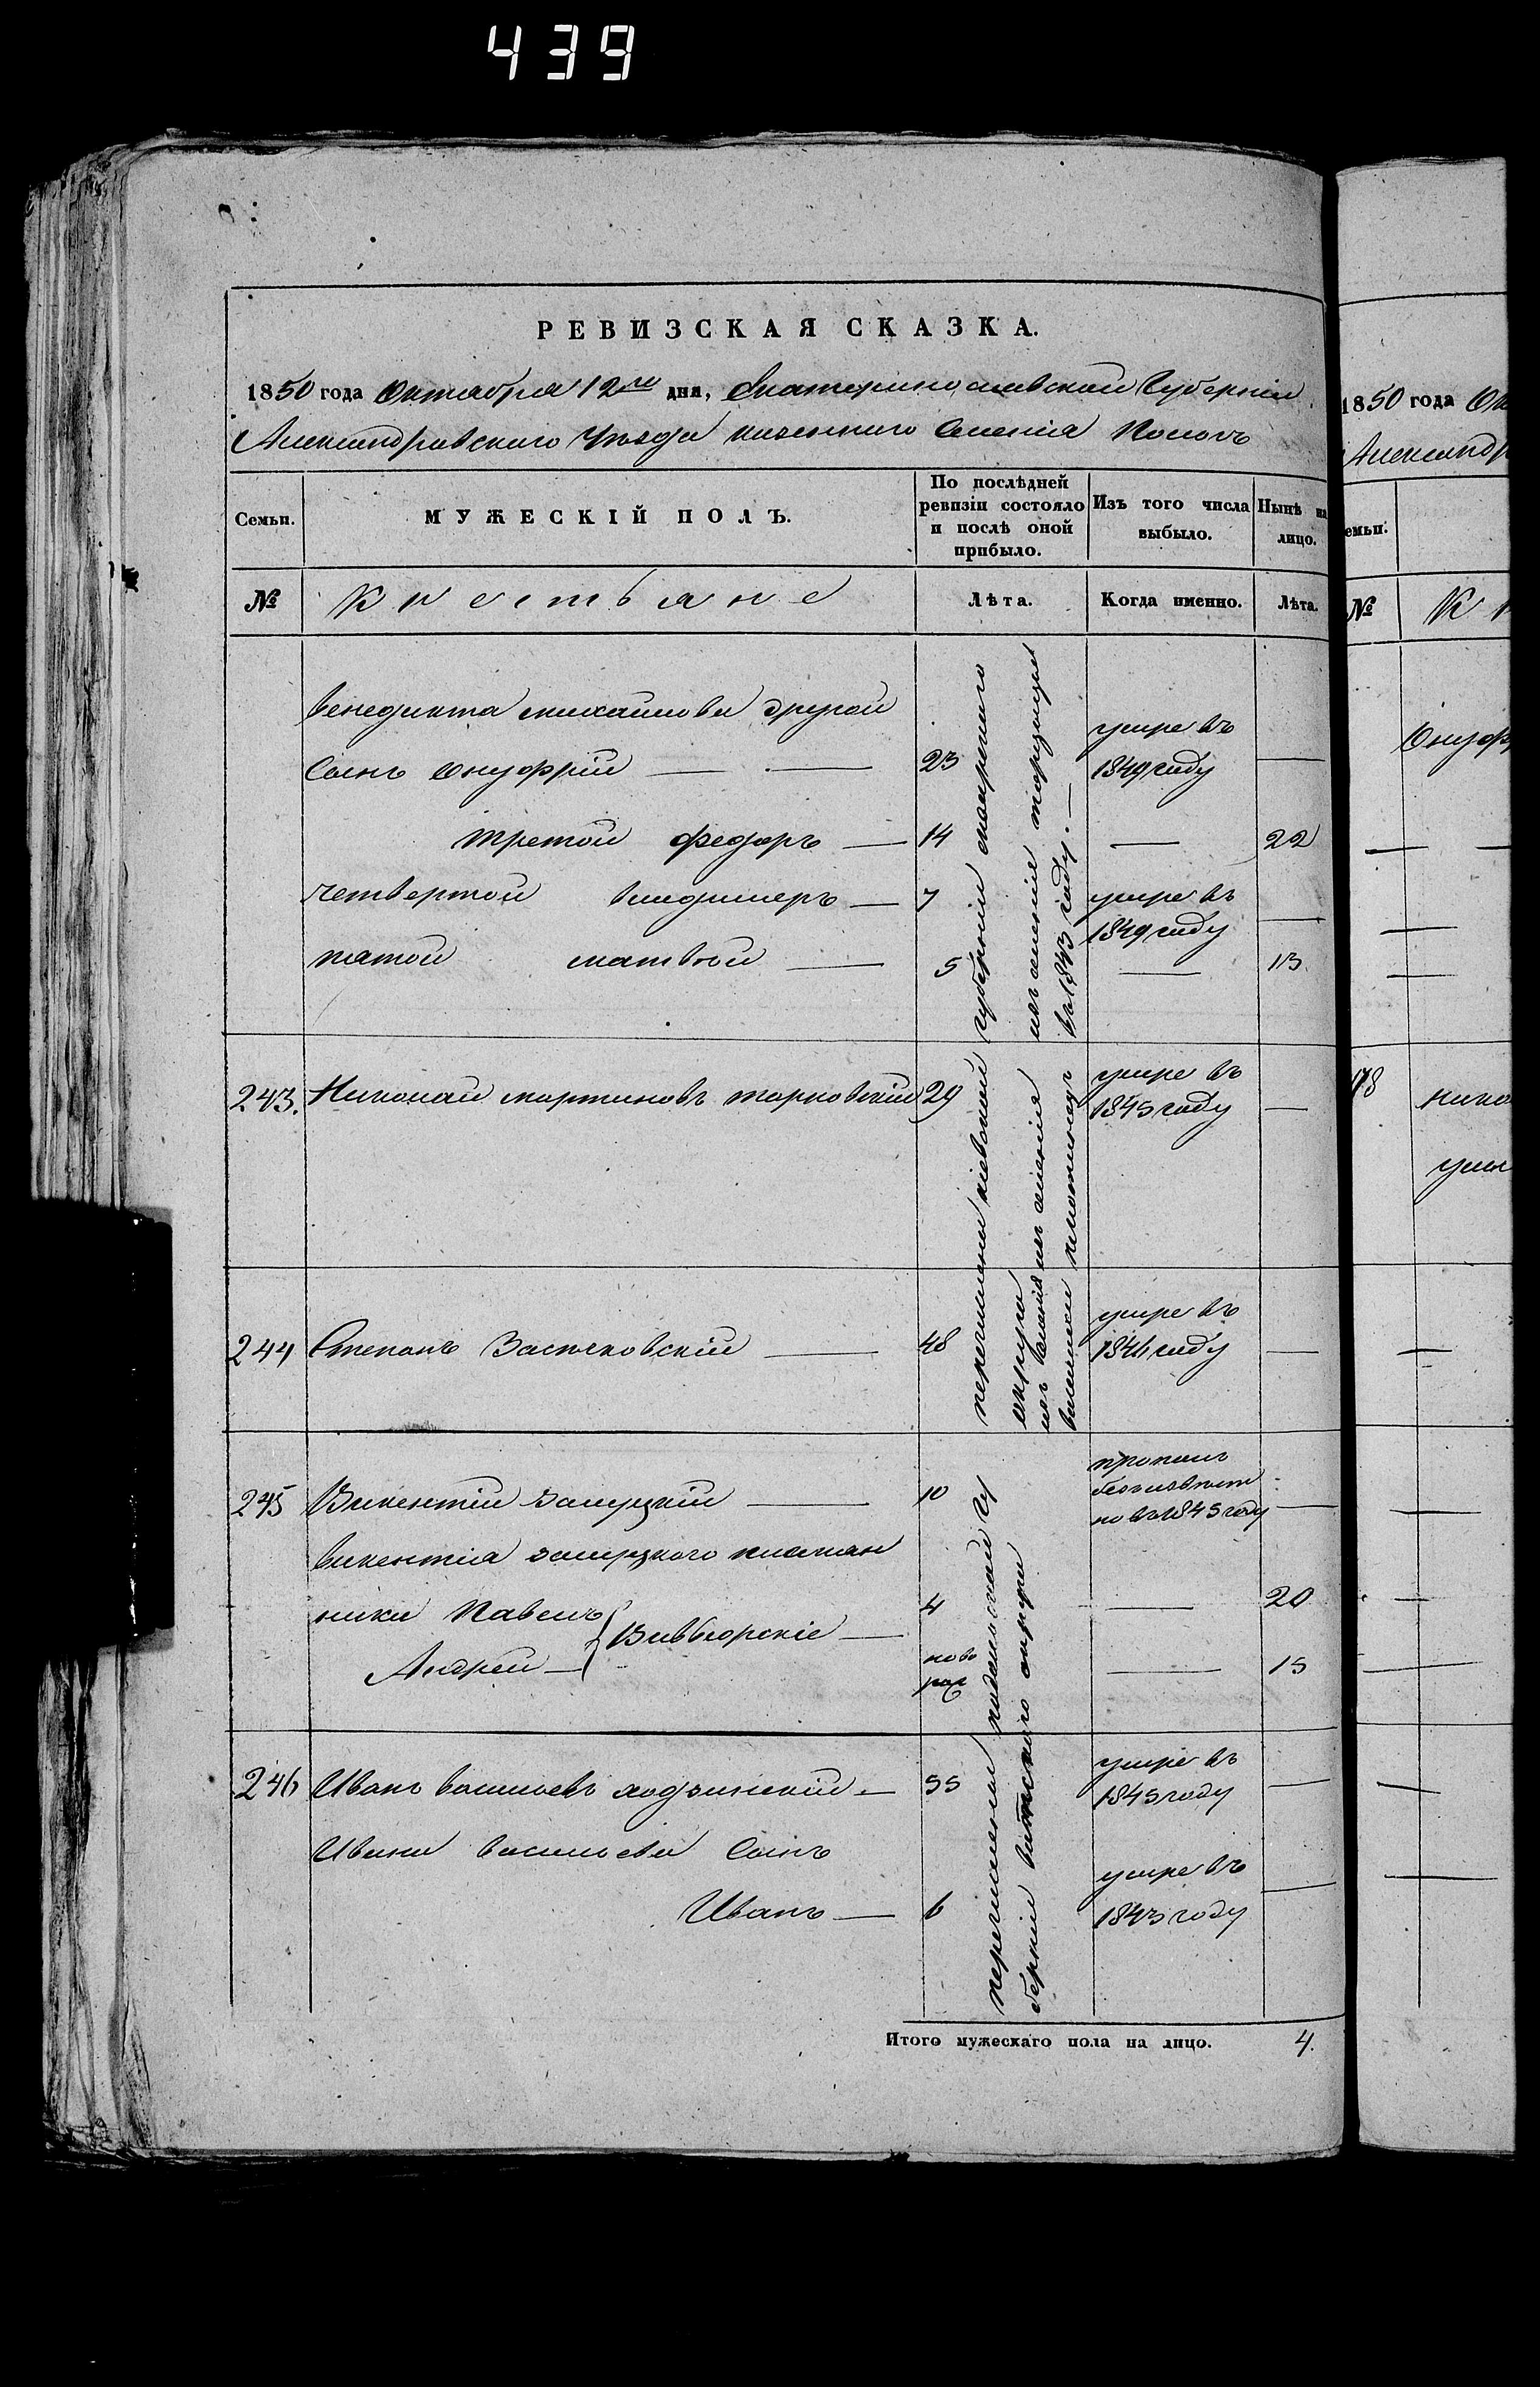 439
РЕВИЗСКАЯ СКАЗКА.
1850 года Октября 12го дня, Екатеринославской Губерніи
Александровскаго Уѣзда казеннаго Селенія
Семьи.
МУЖЕСКІЙ ПОЛЪ.
По послѣдней ревизіи состояло и послѣ оной прибыло.
Изъ того числа выбыло.
Нынѣ на лицо.
№
Крестьяне
Лѣта.
Когда именно.
Лѣта.
Венедикта михайлова другой
Сынъ Онуфрій — — 23 умре въ 1849 году —
третой федоръ — 14 — 22
четвертой владимеръ — 7 умре въ 1849 году —
пятой матвѣй — 5 — 13
243. Николай мартиновъ тарковскій 29 умре въ 1845 году —
244 Степанъ — 48 умре въ 184 году —
245 Викентій залуцкій — 10 пропалъ безъизвѣстно въ 1845 году —
викентія залуцкого племян
ники Павелъ 4 — 20
Андрей — ново рож — 15
246 Иванъ васильевъ ходзинскій — 55 умре въ 1845 году —
Ивана васильева Сынъ
Иванъ — 6 умре въ 1843 году —
перечислены кіевской губерніи
округа
изъ селенія
въ 1843 году. —
перечислены подольской гу
берніи округи
Итого мужескаго пола на лицо. 4.
1850 года
Семьи.
№
К
178